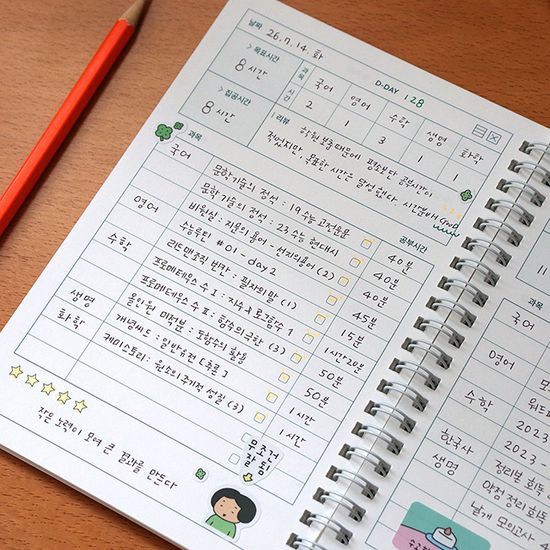 날짜 26. 7. 14. 화
D-DAY 128
> 목표시간
8 시간
과목 국어 영어 수학 생명 화학
시간 2 1 3 1 1
> 집공시간
8 시간
리뷰
학원 보충 때문에 평소보다 공부시간이
적었지만, 목표한 시간은 달성했다. 시간분배 Good
과목
공부시간
국어
문학 기출의 정석 : 19 수능 고전운문 40분
문학 기출의 정석 : 23 수능 현대시 40분
비원실 : 지문의 용어 - 선지의 용어 (2) 40분
영어
수능루틴 #01 - day 2 45분
리드맨조직 반칸 : 필자의 말 (1) 15분
수학
프로메테우스 수 I : 지수 & 로그함수 1 1시간 20분
프로메테우스 수 II : 함수의 극한 (3) 50분
올인원 미적분 : 도함수의 활용 50분
생명
개념씨드 : 일반유전 [추론] 1시간
화학
케미스토리 : 원소의 주기적 성질 (3) 1시간
작은 노력이 모여 큰 결과를 만든다
무조건
잘 됨
과목
국어
영어
수학
워드
2023 -
한국사
2023 -
생명
정리본 회독
약점 정리 회독
날개 모의고사